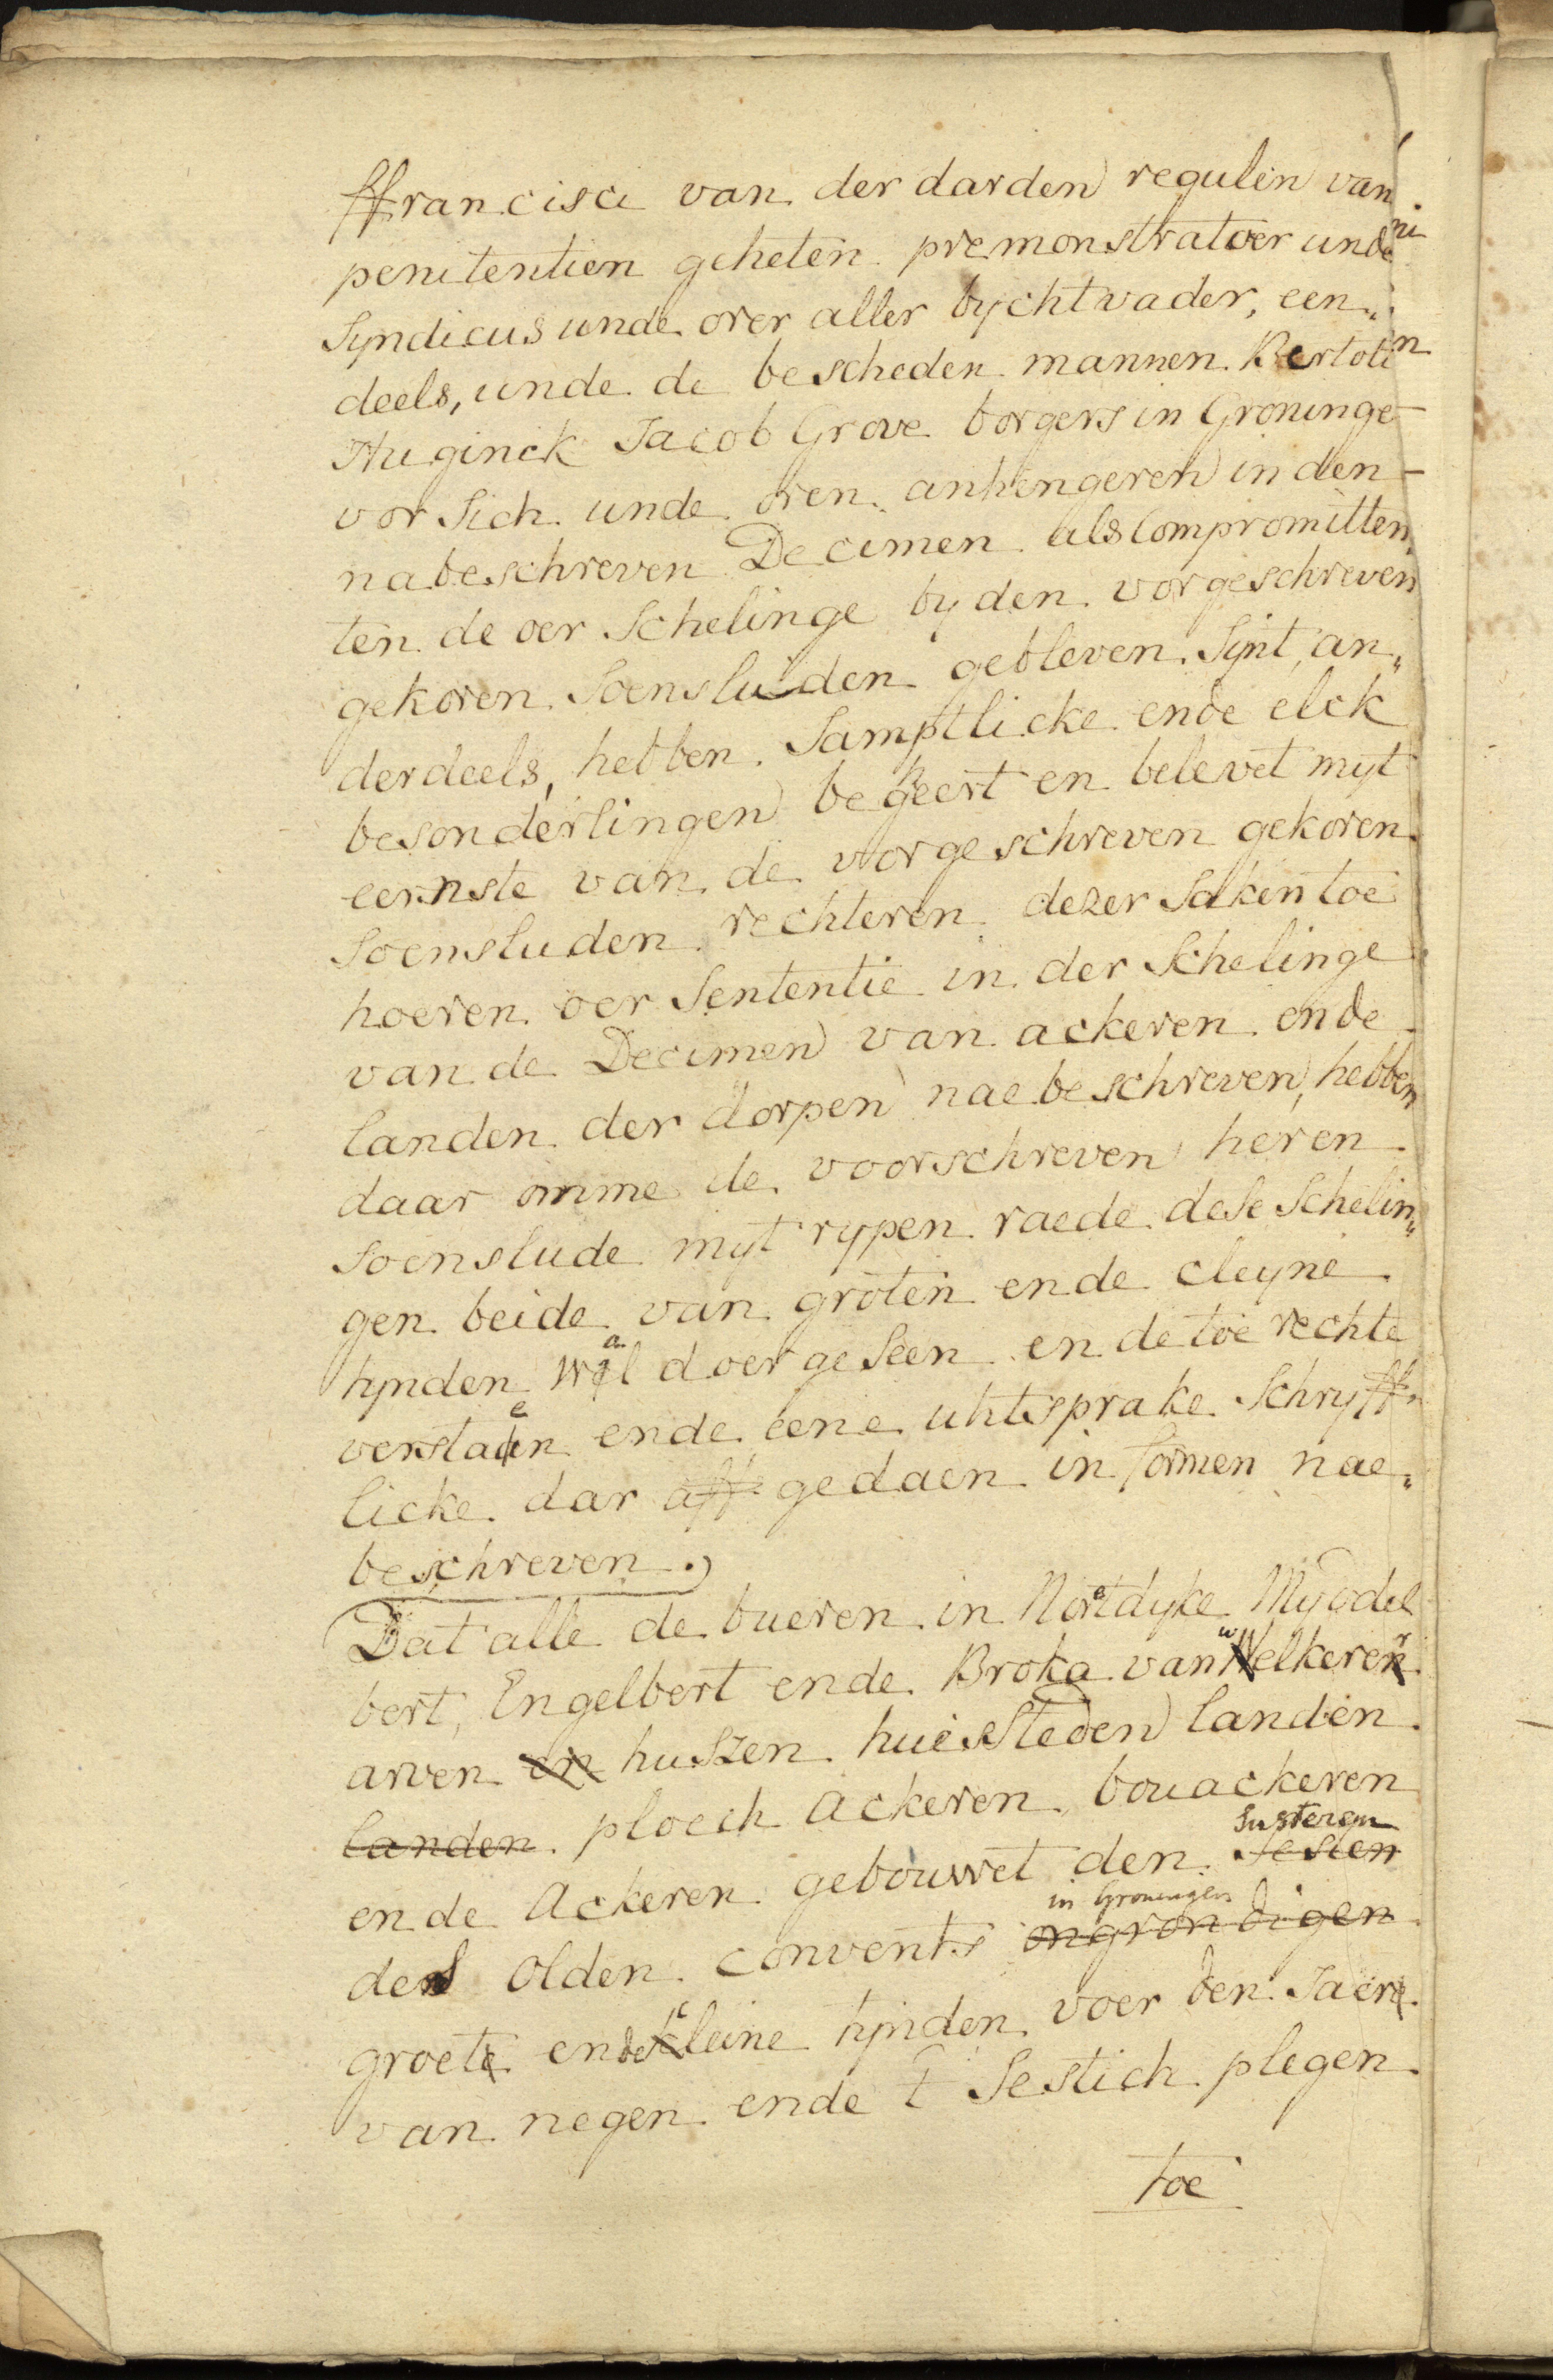 ffrancisci van der darden regulen van
penitentien geheten premonstratoer unde
Syndicus unde over aller bychtvader, een„
deels, unde de bescheden mannen Bertolt
Huginck Jacob Grove borgers in Groninge
vor Sich unde oren anhengeren in den
nabeschreven Decimen als Compromitten„
ten de oer Schelinge by den vorgeschreven
gekoren Soensluden gebleven Synt, an„
derdeels, hebben Samptlicke ende elck
besonderlingen begeert en belevet myt
eernste van de vorgeschreven gekoren
Soensluden rechteren dezer Saken toe
hoeren oer Sententie in der Schelinge
van de Decimen van ackeren ende
landen der dorpen naebeschreven, hebben
daar omme de voorschreven heren
Soenslude myt rypen raede dese Schelin„
gen beide van groten ende cleyne
tynden wal doergeseen ende toe rechte
verstaen ende eene uhtsprake Schryfft
licke dar aff gedaen in formen nae„
beschreven.
Dat alle de bueren in Noretdyke Myddel
bert, Engelbert ende Broka van welkeren
arven en huszen huessteden landen
landen ploech ackeren bouackeren
Susteren
ende Ackeren gebouwet den Sesten
in Groningen
des Olden convents ongrondigen
groete ende kleine tynden voer den Jaere
van negen ende t Sestich plegen
toe